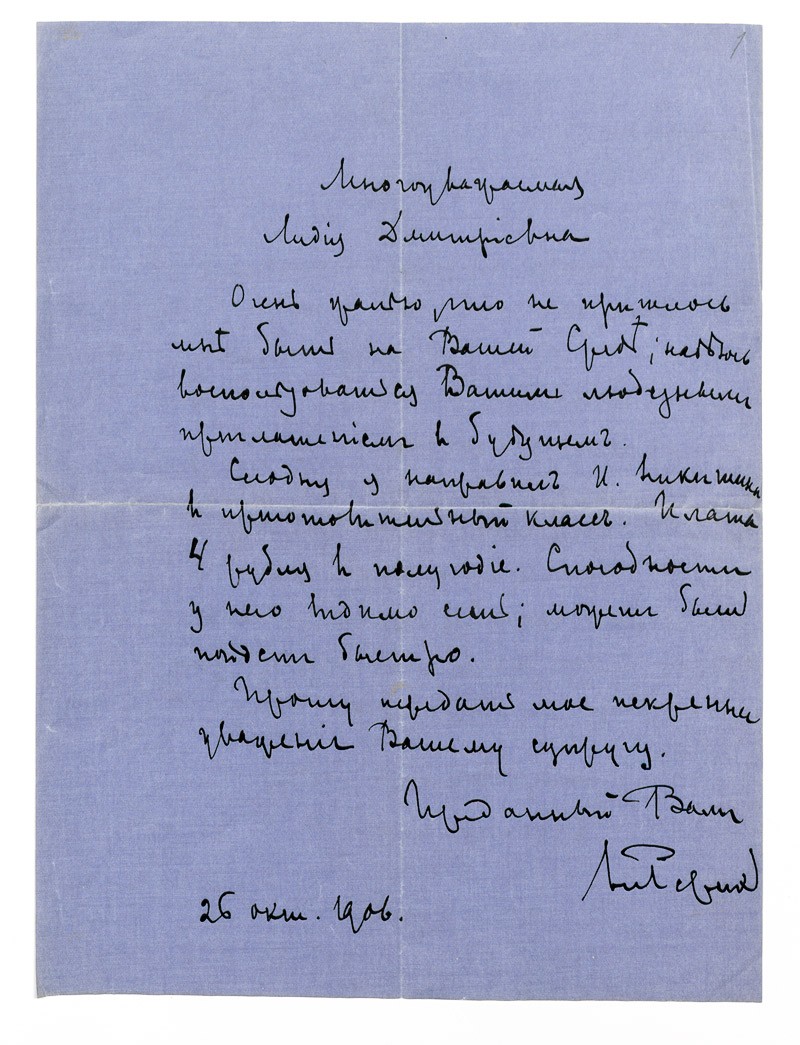 Многоуважаемая
Лидія Дмитріевна
Очень жалѣю, что не пришлось
мнѣ быть на Вашей Средѣ; надѣюсь
воспользоваться Вашимъ любезнымъ
приглашеніемъ въ будущемъ.
Сегодня я направилъ И. Никитина
въ приготовительный классъ. Плата
4 рубля въ полугодіе. Способности
у него видимо есть; можетъ быть
пойдетъ быстро.
Прошу передать мое искреннее
уваженіе Вашему супругу.
Преданный Вамъ
Н. Рерихъ
26 окт. 1906.